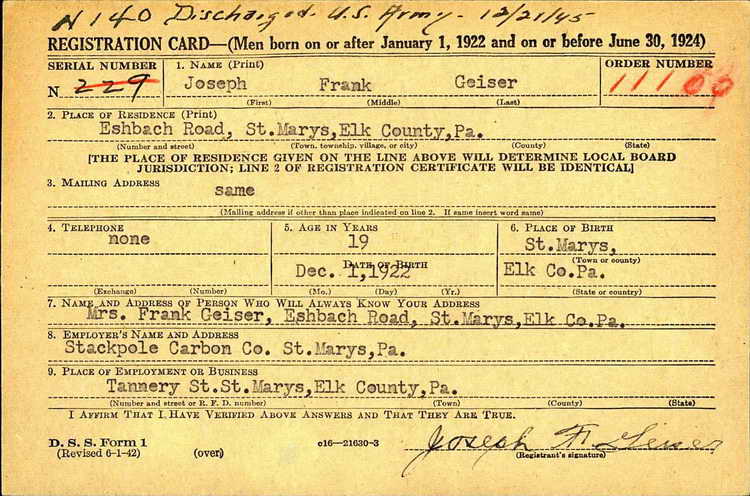 N 140 Discharged - U.S. Army - 12/21/45
REGISTRATION CARD—(Men born on or after January 1, 1922 and on or before June 30, 1924)
SERIAL NUMBER 1. NAME (Print) ORDER NUMBER
N 229 Joseph Frank Geiser 11100
(First) (Middle) (Last)
2. PLACE OF RESIDENCE (Print)
Eshbach Road, St.Marys,Elk County,Pa.
(Number and street) (Town, township, village, or city) (County) (State)
[THE PLACE OF RESIDENCE GIVEN ON THE LINE ABOVE WILL DETERMINE LOCAL BOARD
JURISDICTION; LINE 2 OF REGISTRATION CERTIFICATE WILL BE IDENTICAL]
3. MAILING ADDRESS
same
(Mailing address if other than place indicated on line 2. If same insert word same)
4. TELEPHONE 5. AGE IN YEARS 6. PLACE OF BIRTH
none 19 St.Marys,
DATE OF BIRTH (Town or county)
Dec. 1,1922 Elk Co.Pa.
(Exchange) (Number) (Mo.) (Day) (Yr.) (State or country)
7. NAME AND ADDRESS OF PERSON WHO WILL ALWAYS KNOW YOUR ADDRESS
Mrs. Frank Geiser, Eshbach Road, St.Marys,Elk Co.Pa.
8. EMPLOYER'S NAME AND ADDRESS
Stackpole Carbon Co. St.Marys,Pa.
9. PLACE OF EMPLOYMENT OR BUSINESS
Tannery St.St.Marys,Elk County,Pa.
(Number and street or R. F. D. number) (Town) (County) (State)
I AFFIRM THAT I HAVE VERIFIED ABOVE ANSWERS AND THAT THEY ARE TRUE.
D. S. S. Form 1
(Revised 6-1-42) (over) c16—21630-3 Joseph F. Geiser
(Registrant's signature)